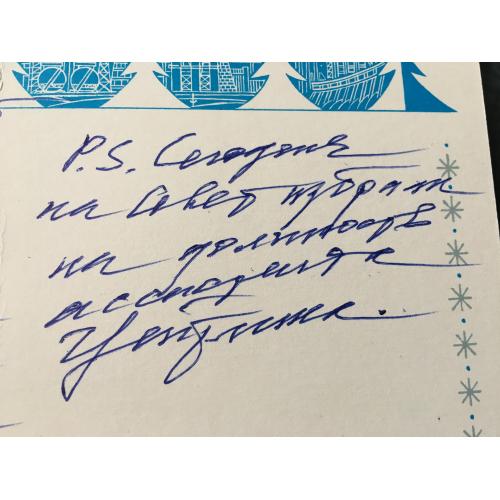 P.S. Сегодня
на Совет избран
на должность
ассистента